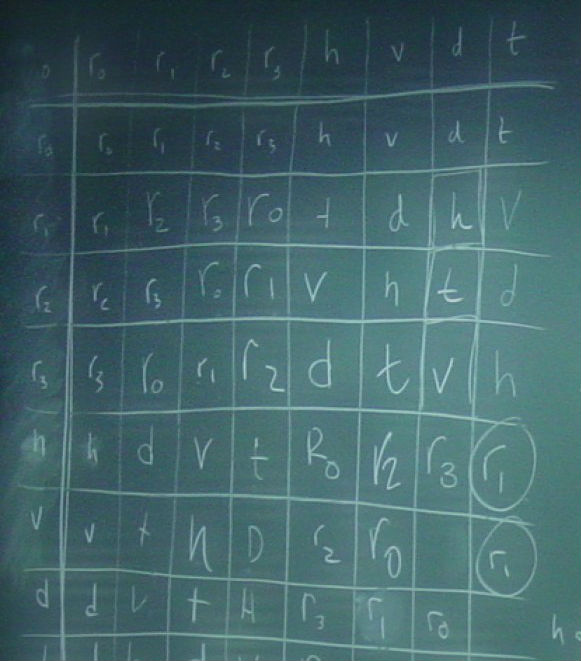 o r₀ r₁ r₂ r₃ h v d t
r₀ r₀ r₁ r₂ r₃ h v d t
r₁ r₁ r₂ r₃ r₀ t d h V
r₂ r₂ r₃ r₀ r₁ V h t d
r₃ r₃ r₀ r₁ r₂ d t v h
h h d V t R₀ r₂ r₃ r₁
V v t h D r₂ r₀ r₁
d d V t H r₃ r₁ r₀